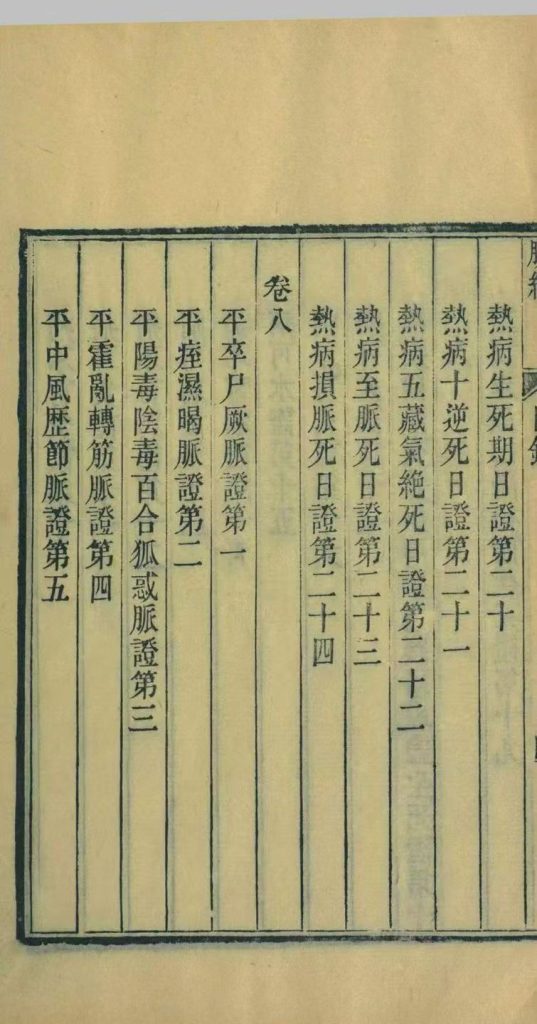 脈經
目錄
熱病生死期日證第二十
熱病十逆死日證第二十一
熱病五藏氣絶死日證第二十二
熱病至脈死日證第二十三
熱病損脈死日證第二十四
卷八
平卒尸厥脈證第一
平痓濕暍脈證第二
平陽毒陰毒百合狐惑脈證第三
平霍亂轉筋脈證第四
平中風歴節脈證第五